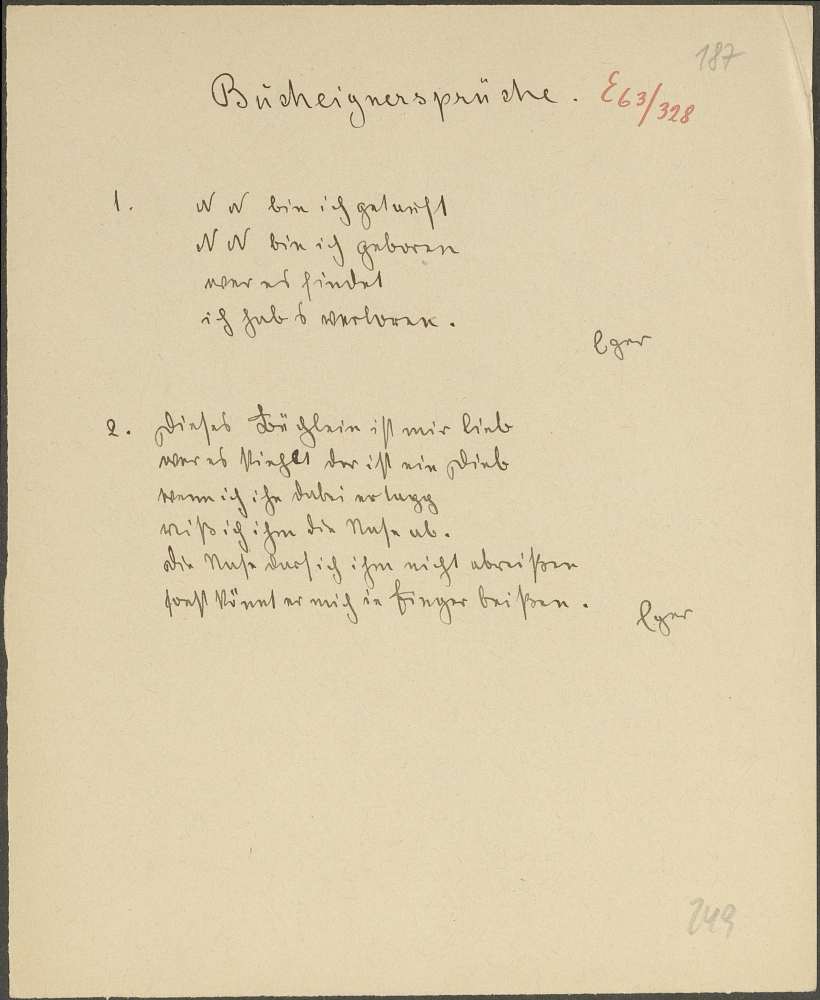 187
Bücheignersprüche. E63/328
1. N N bin ich getauft
N N bin ich geboren
wer es findet
ich hab s verloren.
Eger
2. Dieses Büchlein ist mir lieb
wer es stiehlt der ist ein Dieb
wenn ich ihn dabei ertapp
reiß ich ihm die Nase ab.
Die Nase darf ich ihm nicht abreißen
sonst könnt er mich in Finger beißen.
Eger
249